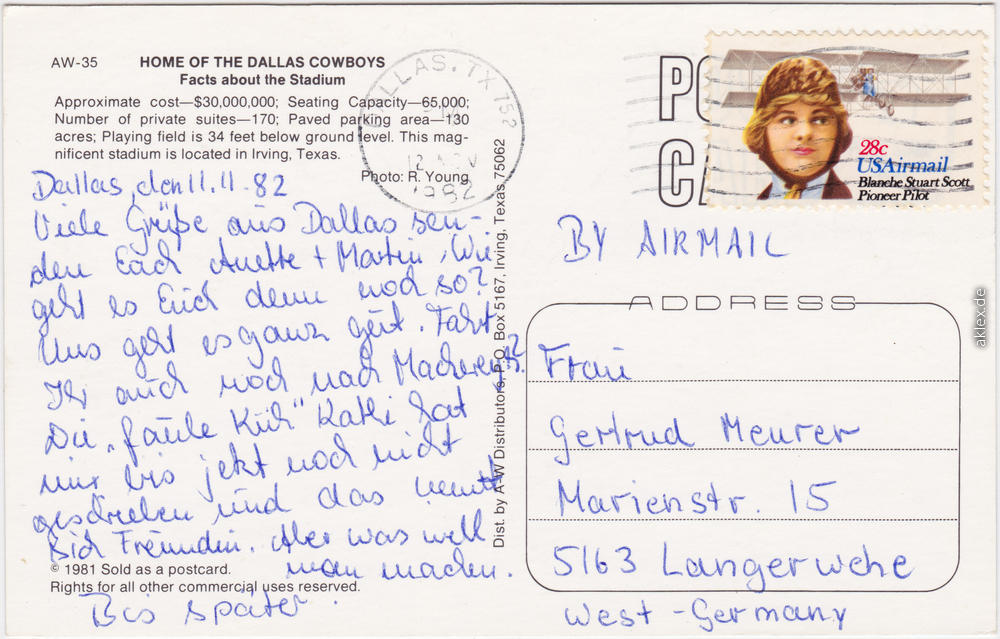 AW-35 HOME OF THE DALLAS COWBOYS
Facts about the Stadium
Approximate cost—$30,000,000; Seating Capacity—65,000;
Number of private suites—170; Paved parking area—130
acres; Playing field is 34 feet below ground level. This mag-
nificent stadium is located in Irving, Texas.
Photo: R. Young
Dallas, den 11.11.82
Viele Grüße aus Dallas sen-
den Euch Anette + Martin, Wie
geht es Euch denn noch so?
Uns geht es ganz gut. Fahrt
Ihr auch noch nach
Die „faule Kuh" Kathi hat
mir bis jetzt noch nicht
geschrieben und das nennt
sich Freundin. Aber was will
man machen.
© 1981 Sold as a postcard.
Rights for all other commercial uses reserved.
Bis später.
Dist. by A-W Distributors, P.O. Box 5167, Irving, Texas, 75062
LLAS, TX 752
12 NOV
1982
PO
C
28c
USAirmail
Blanche Stuart Scott
Pioneer Pilot
BY AIRMAIL
ADDRESS
Frau
Gertrud Meurer
Marienstr. 15
5163 Langerwehe
West-Germany
aklex.de